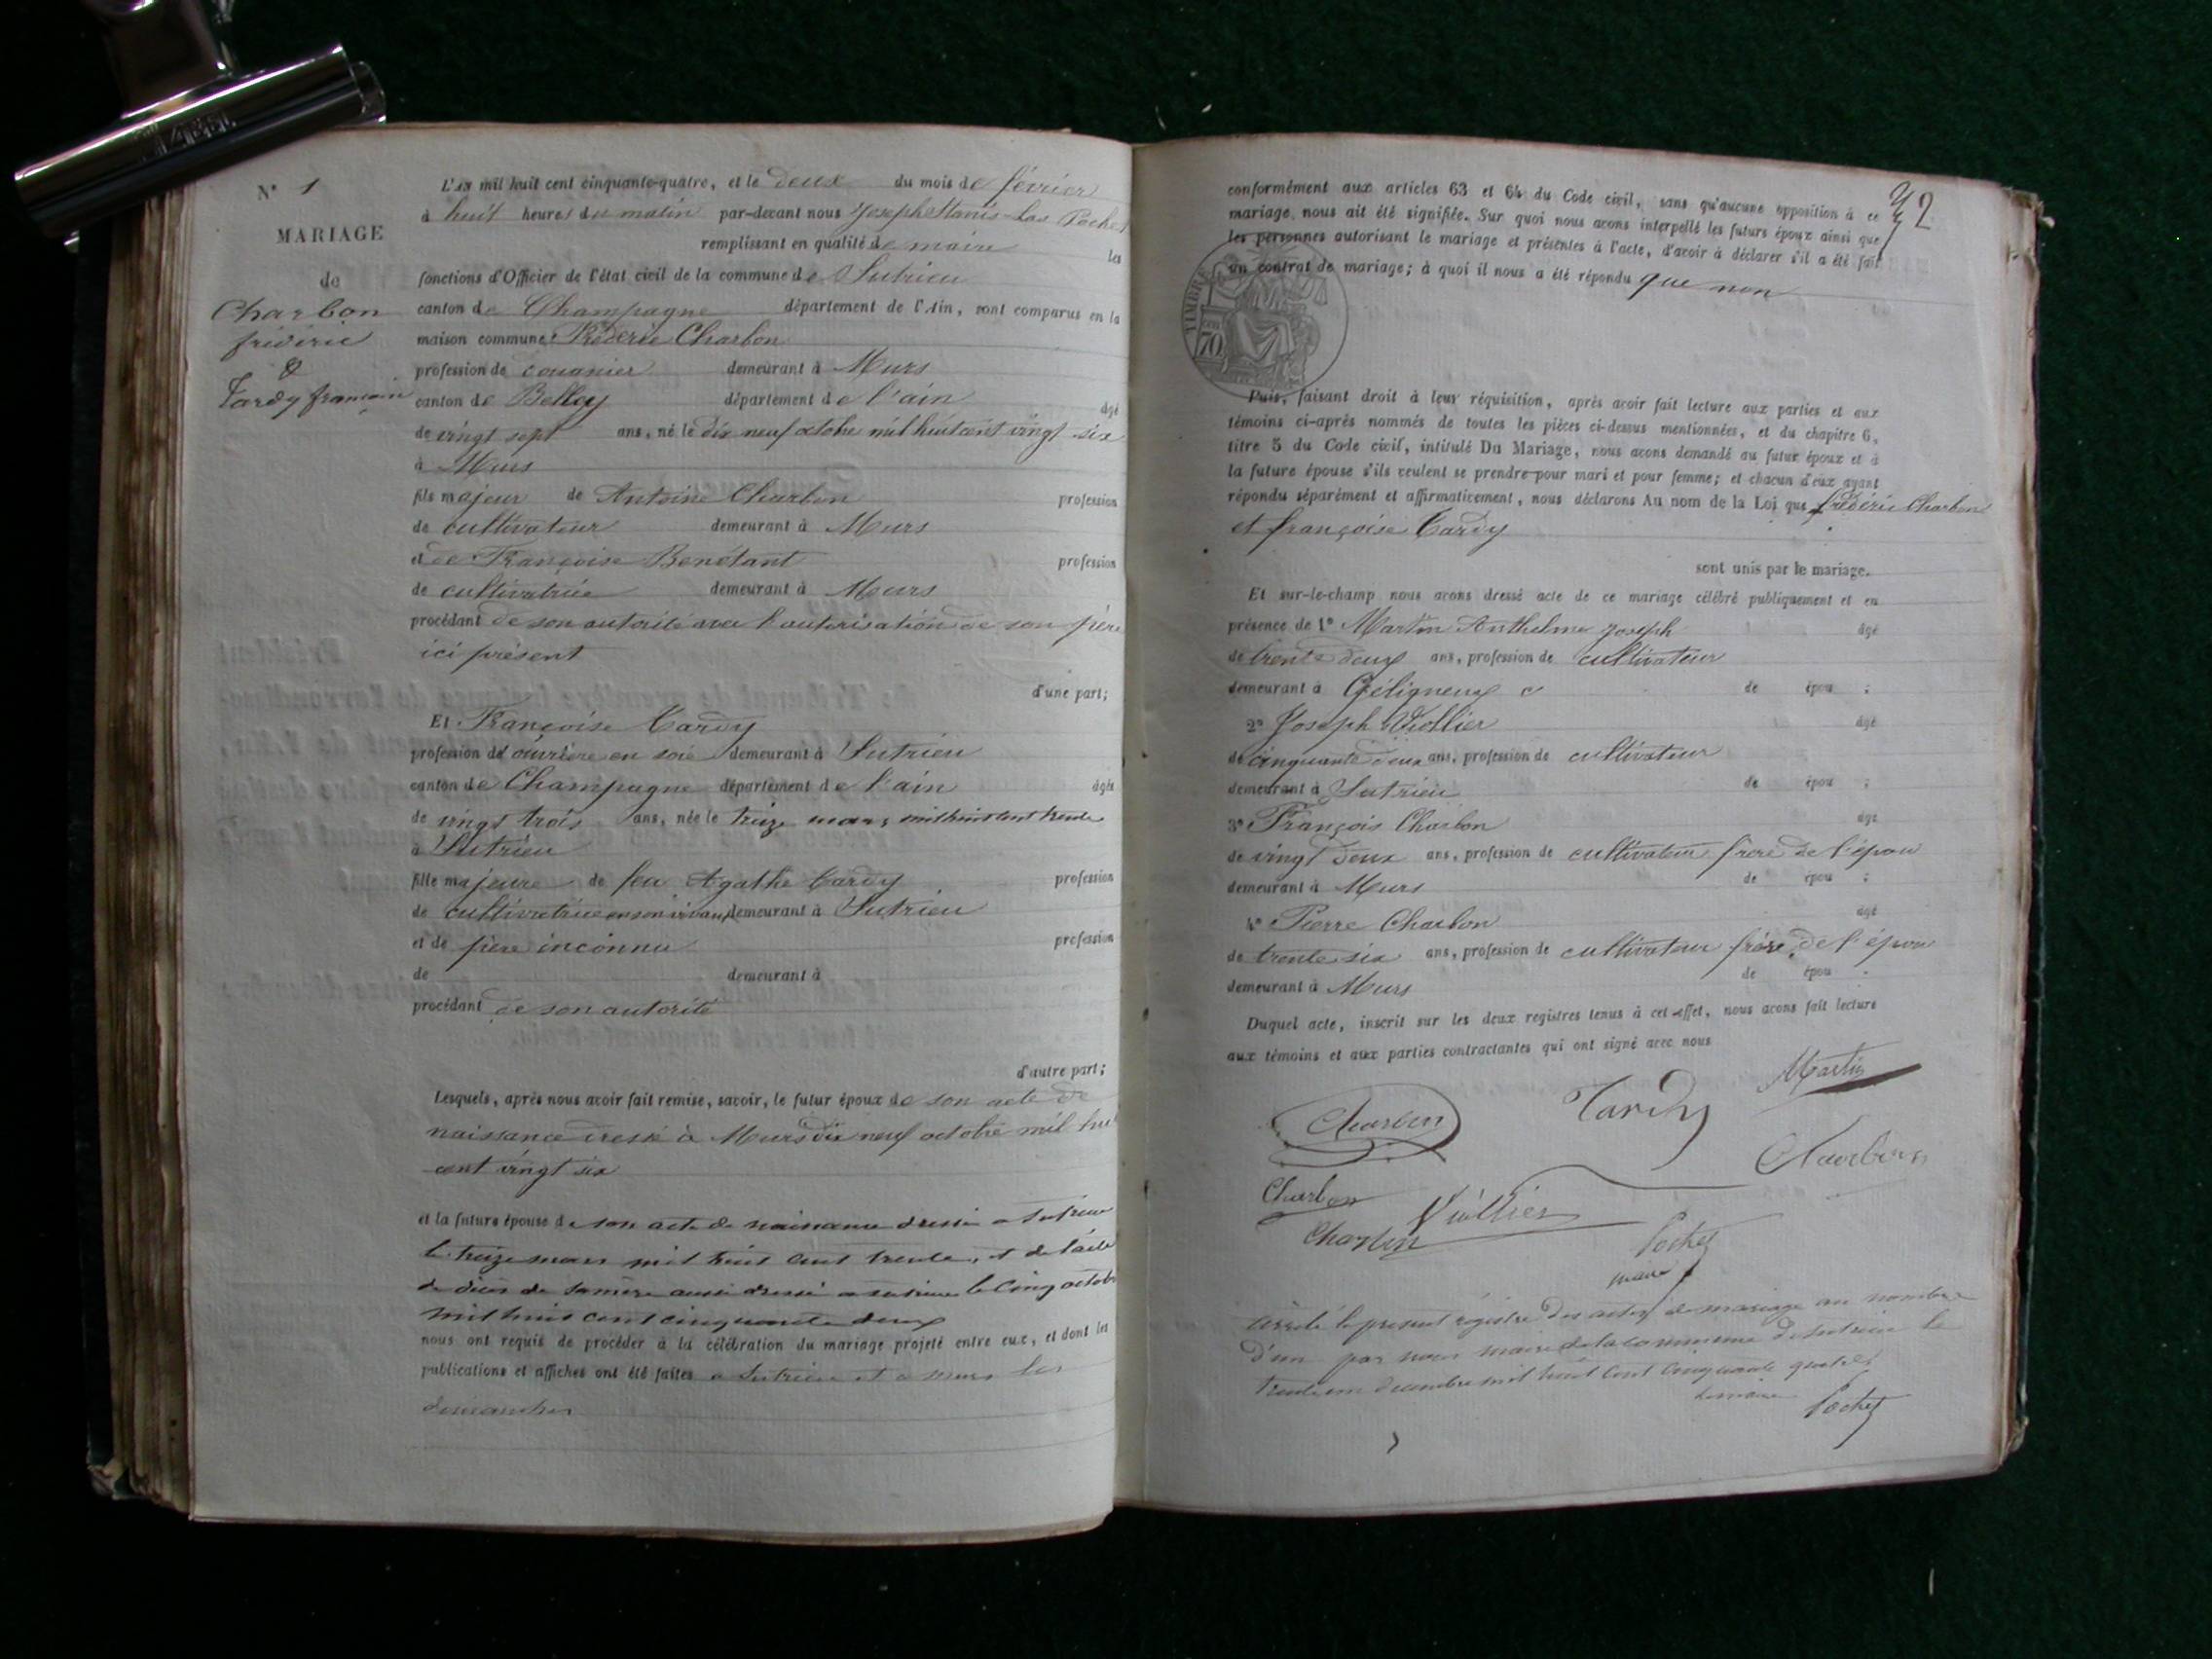 N° 1
MARIAGE
de
Charbon
frédéric
&
Tardy françoise
L'AN mil huit cent cinquante-quatre, et le deux du mois de février
à huit heures du matin par-devant nous Joseph Stanis-las Pochet
remplissant en qualité de maire les
fonctions d'Officier de l'état civil de la commune de Sutrieu
canton de Champagne département de l'Ain, sont comparus en la
maison commune: Frédéric Charbon
profession de demeurant à Murs
canton de Belley département de l'ain âgé
de vingt sept ans, né le dix neuf octobre mil huit cent vingt six
à Murs
fils majeur de Antoine Charbon profession
de cultivateur demeurant à Murs
et de Françoise Benétant profession
de cultivatrice demeurant à Murs
procédant de son autorité avec l'autorisation de son père
ici présent
d'une part;
Et Françoise Tardy
profession d'ouvrière en soie demeurant à Sutrieu
canton de Champagne département de l'ain âgée
de vingt trois ans, née le treize mars mil huit cent trente
à Sutrieu
fille majeure de feu Agathe Tardy profession
de cultivatrice en son vivant demeurant à Sutrieu
et de père inconnu profession
de demeurant à
procédant de son autorité
d'autre part;
Lesquels, après nous avoir fait remise, savoir, le futur époux de son acte de
naissance dressé à Murs dix neuf octobre mil huit
cent vingt six
et la future épouse de son acte de naissance dressé a Sutrieu
le treize mars mil huit cent trente, et de l'acte
de décès de sa mère aussi dressé a sutrieu le cinq octobre
mil huit cent cinquante deux
nous ont requis de procéder à la célébration du mariage projeté entre eux, et dont les
publications et affiches ont été faites a Sutrieu et a murs les
dimanches
32
conformément aux articles 63 et 64 du Code civil, sans qu'aucune opposition à ce
mariage nous ait été signifiée. Sur quoi nous avons interpellé les futurs époux ainsi que
les personnes autorisant le mariage et présentes à l'acte, d'avoir à déclarer s'il a été fait
un contrat de mariage; à quoi il nous a été répondu que non
TIMBRE
70
Puis, faisant droit à leur réquisition, après avoir fait lecture aux parties et aux
témoins ci-après nommés de toutes les pièces ci-dessus mentionnées, et du chapitre 6,
titre 5 du Code civil, intitulé Du Mariage, nous avons demandé au futur époux et à
la future épouse s'ils veulent se prendre pour mari et pour femme; et chacun d'eux ayant
répondu séparément et affirmativement, nous déclarons Au nom de la Loi que frédéric Charbon
et françoise Tardy
sont unis par le mariage.
Et sur-le-champ nous avons dressé acte de ce mariage célébré publiquement et en
présence de 1° Martin Anthelme Joseph âgé
de trente deux ans, profession de cultivateur
demeurant à Géligneux de épou ;
2° Joseph Viollier âgé
de cinquante deux ans, profession de cultivateur
demeurant à Sutrieu de épou ;
3° François Charbon âgé
de vingt deux ans, profession de cultivateur frere de l'épou
demeurant à Murs de épou ;
4° Pierre Charbon âgé
de trente six ans, profession de cultivateur frère de l'épou
demeurant à Murs de épou .
Duquel acte, inscrit sur les deux registres tenus à cet effet, nous avons fait lecture
aux témoins et aux parties contractantes qui ont signé avec nous
Martin
Charbon
Tardy
Charbon
Charbon
Viollier
Charbon
Pochet
maire
arrêté le présent régistre des actes de mariage au nombre
d'un par nous maire de la commune de Sutrieu le
trente un décembre mil huit cent cinquante quatre
le maire Pochet